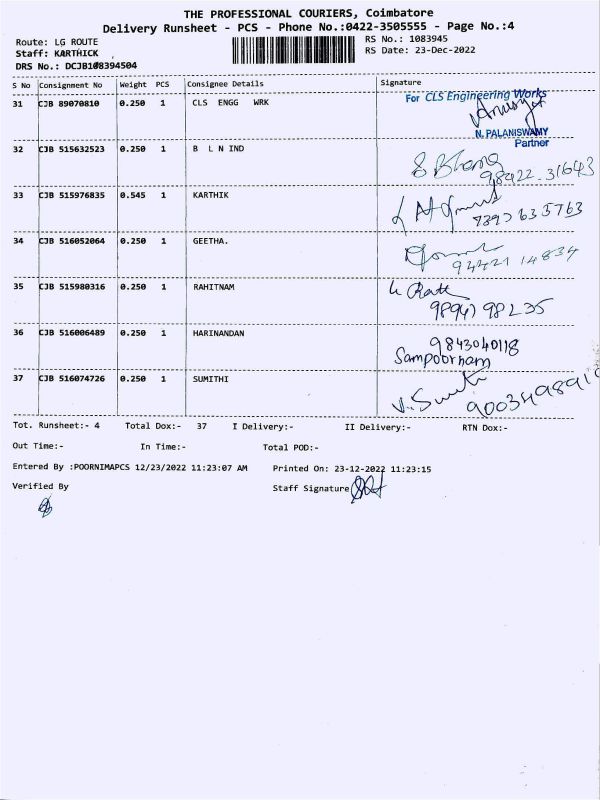 THE PROFESSIONAL COURIERS, Coimbatore
Delivery Runsheet - PCS - Phone No.:0422-3505555 - Page No.:4
Route: LG ROUTE
RS No.: 1083945
Staff: KARTHICK
RS Date: 23-Dec-2022
DRS No.: DCJB108394504
S No Consignment No Weight PCS Consignee Details Signature
31 CJB 89070810 0.250 1 CLS ENGG WRK
For CLS Engineering Works
N. PALANISWAMY
Partner
32 CJB 515632523 0.250 1 B L N IND
98422.31643
33 CJB 515976835 0.545 1 KARTHIK
34 CJB 516052064 0.250 1 GEETHA.
94421 14834
35 CJB 515980316 0.250 1 RAHITNAM
98941 98235
36 CJB 516006489 0.250 1 HARINANDAN
9843040118
Sampoornam
37 CJB 516074726 0.250 1 SUMITHI
Tot. Runsheet:- 4 Total Dox:- 37 I Delivery:- II Delivery:- RTN Dox:-
Out Time:- In Time:- Total POD:-
Entered By :POORNIMAPCS 12/23/2022 11:23:07 AM Printed On: 23-12-2022 11:23:15
Verified By Staff Signature